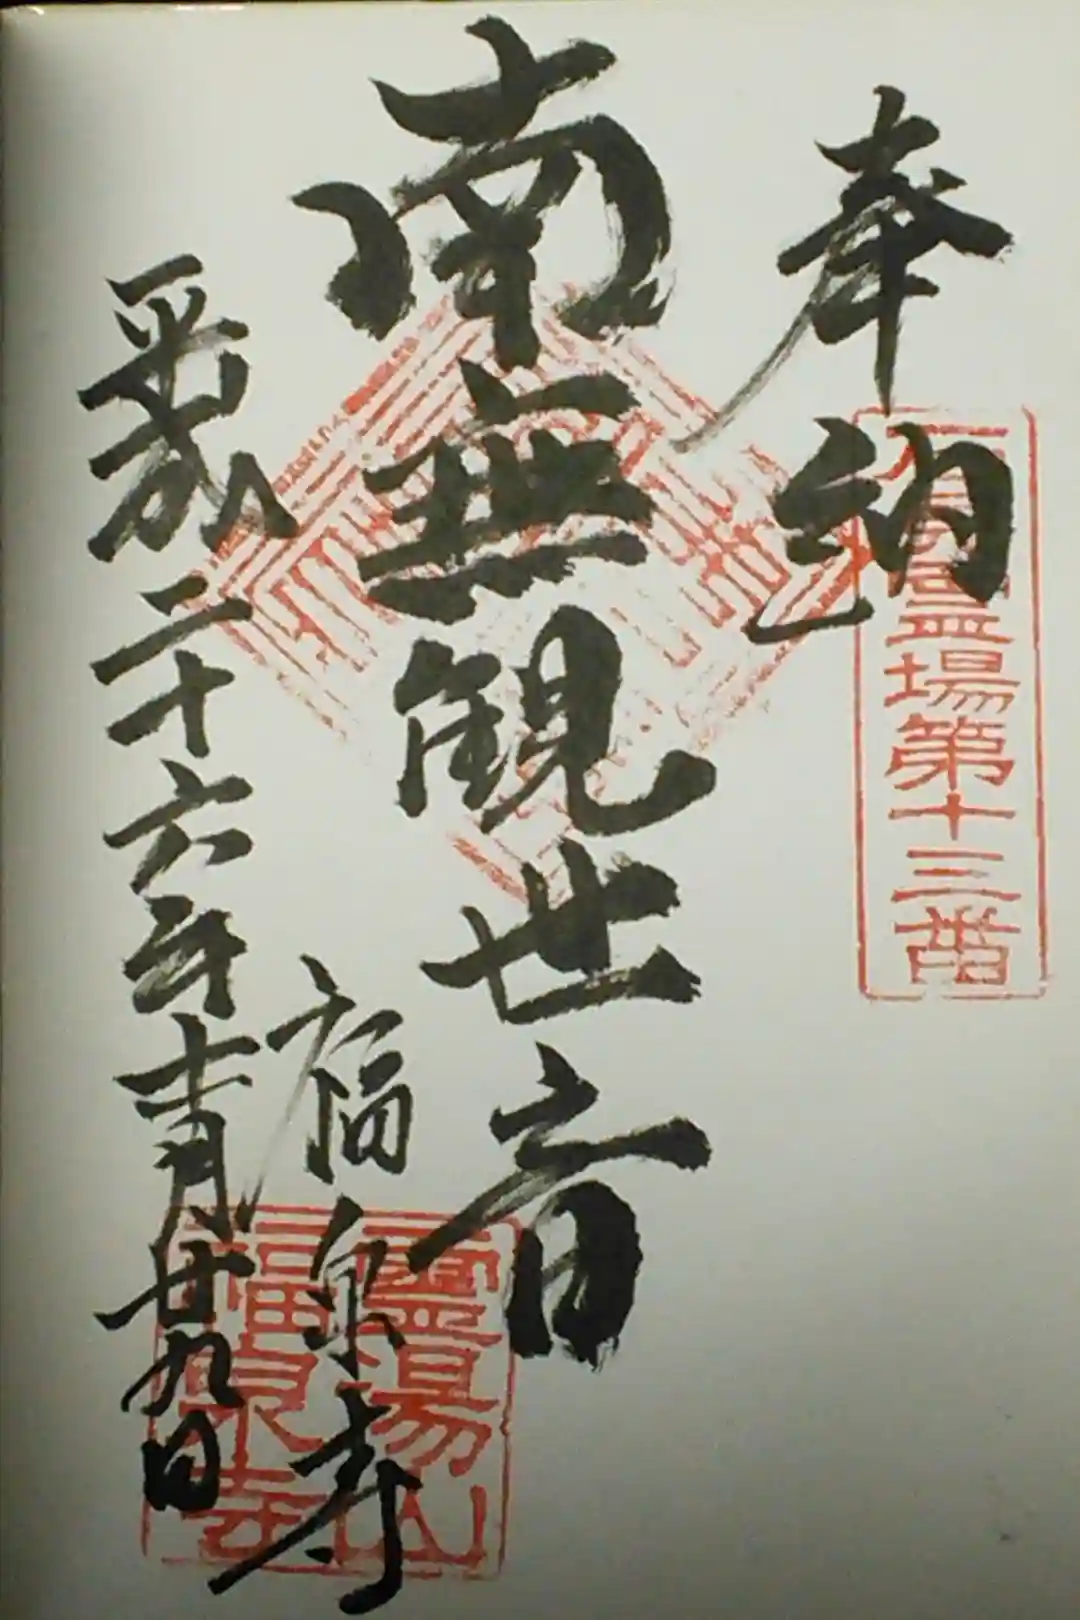 奉納
霊場第十三番
南無観世音
福泉寺
霊湯山
福泉寺
平成二十六年十一月廿九日